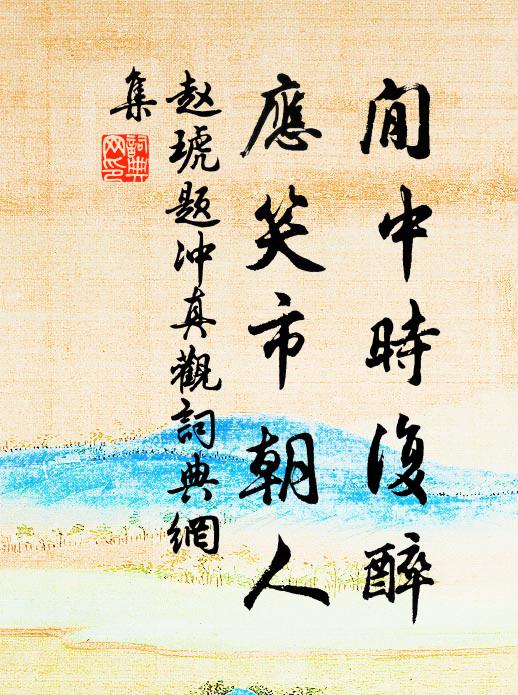 閒中時復醉
應笑市朝人
赵琥题冲真觀詞典網
集
詞典
网印